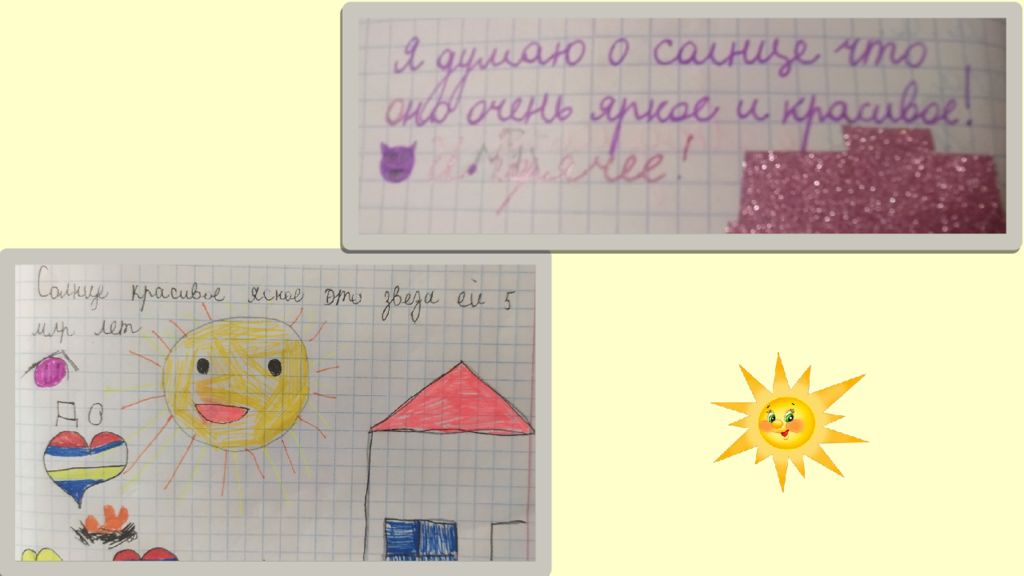 Я думаю о солнце что
оно очень яркое и красивое!
и горячее!
Солнце красивое ясное это звезда ей 5
млр лет
До